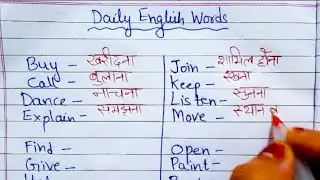 Daily English Words
Buy - खरीदना
Call - बुलाना
Dance - नाचना
Explain - समझना
Find -
Give -
Join - शामिल होना
Keep - रखना
Listen - सुनना
Move - स्थान
Open -
Paint -